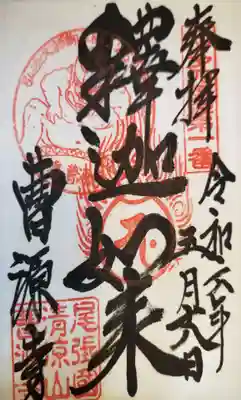 奉拝
令和六年
五月六日
釋迦如来
曹源寺
尾張国
清涼山
曹源寺